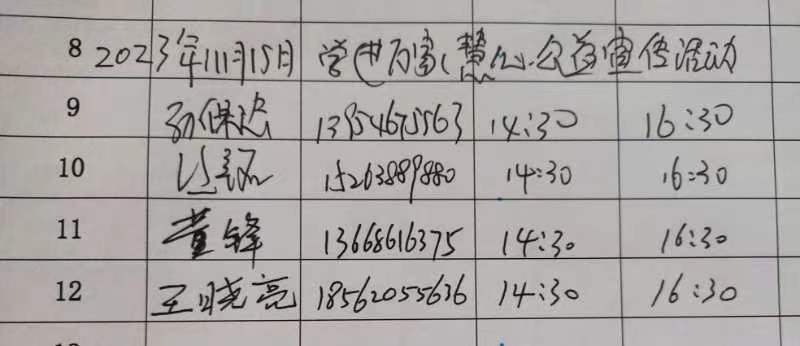 8 2023年11月15日 学世万家(慧心公益宣传活动
9 孙保忠 13954675563 14:30 16:30
10 15263889880 14:30 16:30
11 董锋 13668616375 14:30 16:30
12 王晓亮 18562055636 14:30 16:30